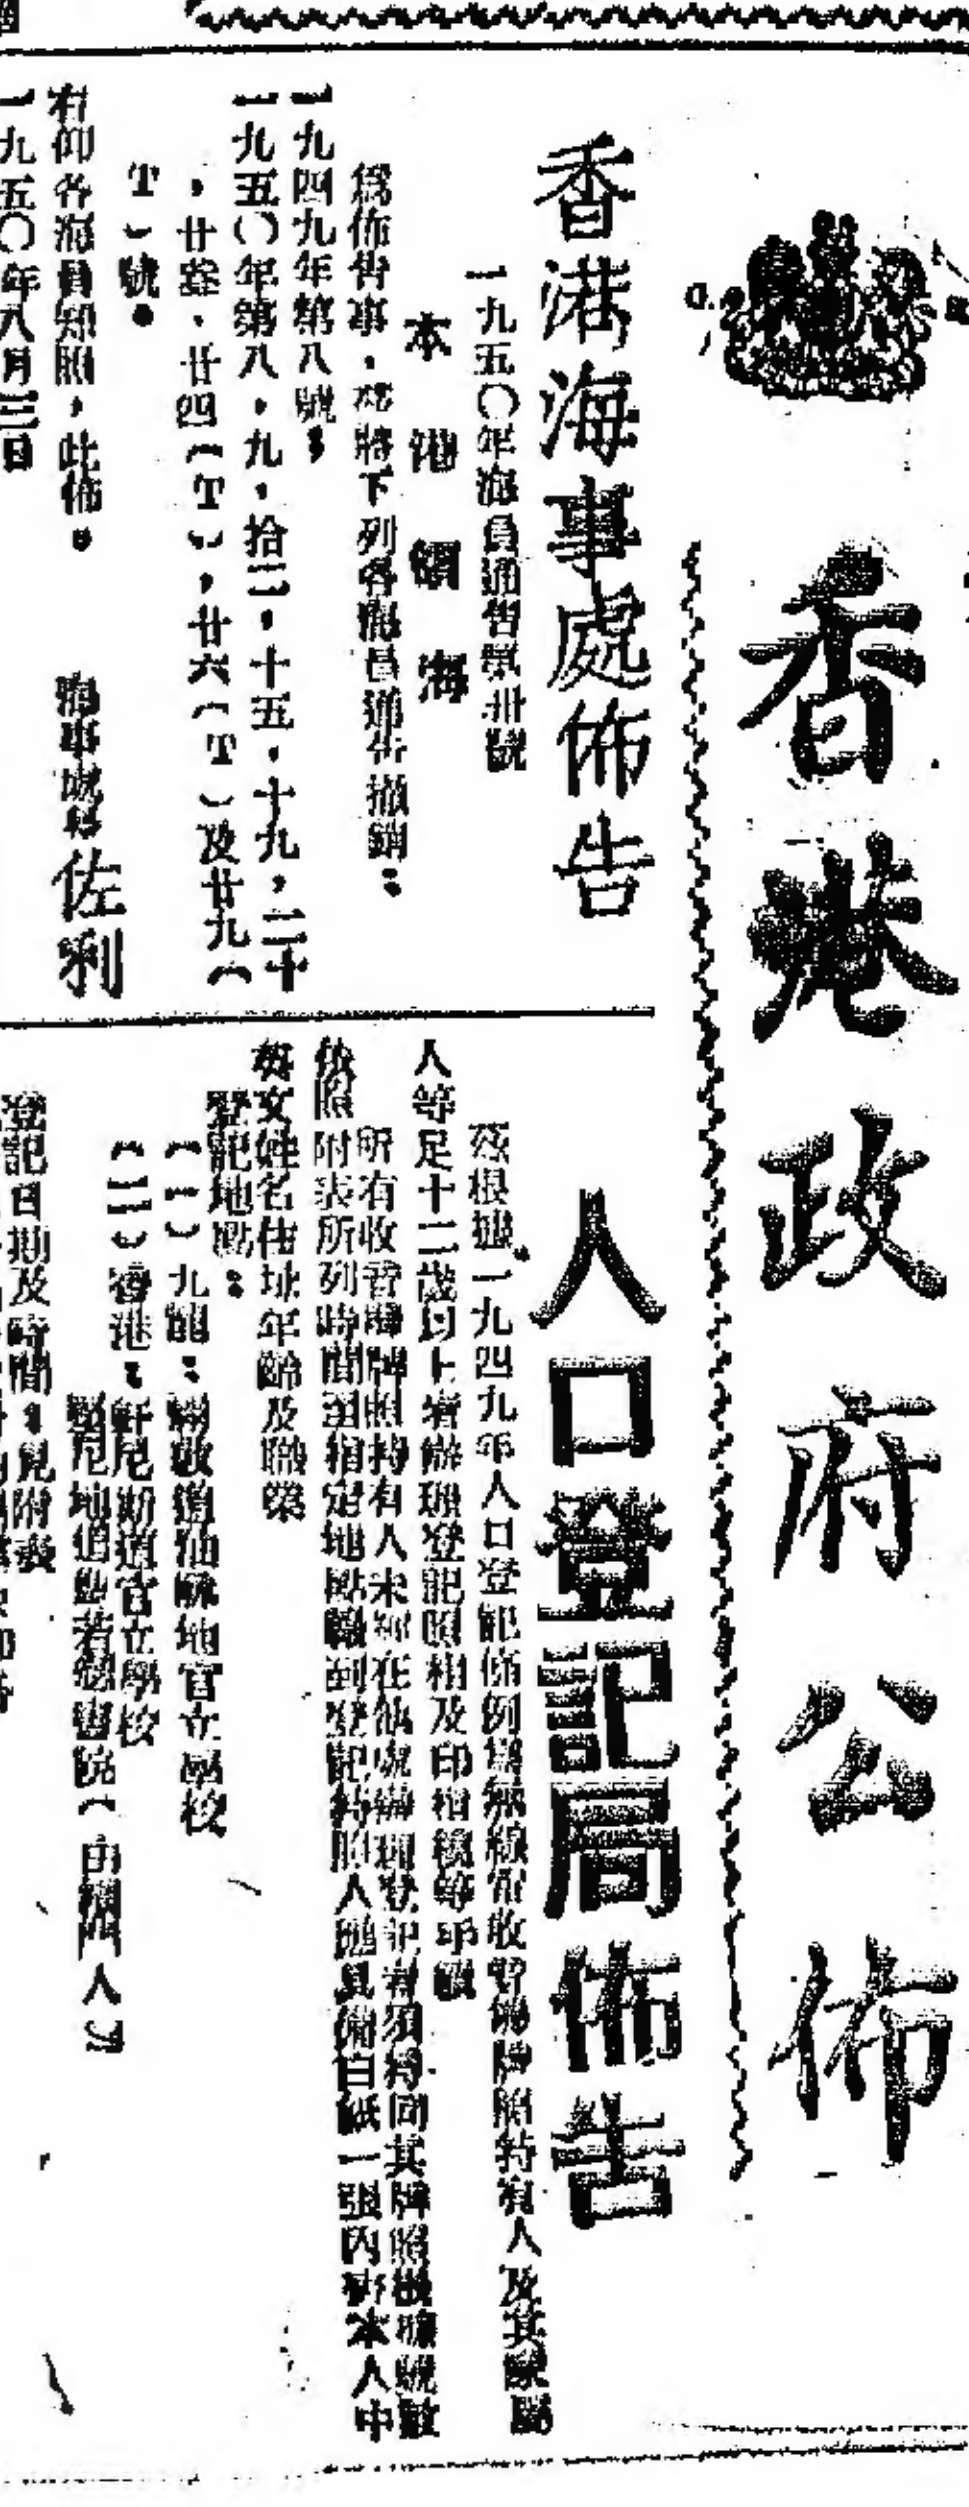 香港政府公佈
香港海事處佈告
一九五〇年海員通告第卅號
本港領海
為佈告事，茲將下列各海員通告撤銷：
一九四九年第八號，
一九五〇年第八，九，拾二，十五，十九，二十
，廿叁，廿四（T），廿六（T）及廿九（
T）號。
右仰各海員知照，此佈。
海事處長 佐利
一九五〇年八月三日
人口登記局佈告
茲根據一九四九年人口登記條例為無線電收音機牌照持有人及其家屬
人等足十二歲以上者辦理登記照相及印指模等手續
所有收音機牌照持有人未經在他處辦理登記者須攜同其牌照機繳號數
依照附表所列時間到指定地點報到登記持照人應具備白紙一張內書本人中
英文姓名住址年齡及職業
登記地點：
（一）九龍：彌敦道油麻地官立學校
（二）香港：軒尼斯道官立學校
堅尼地道聖若瑟書院（由橫門入內
登記日期及時間：見附表